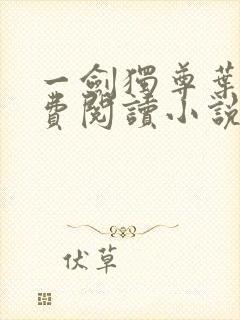 一劍獨尊葉
費閱讀小說
伏草